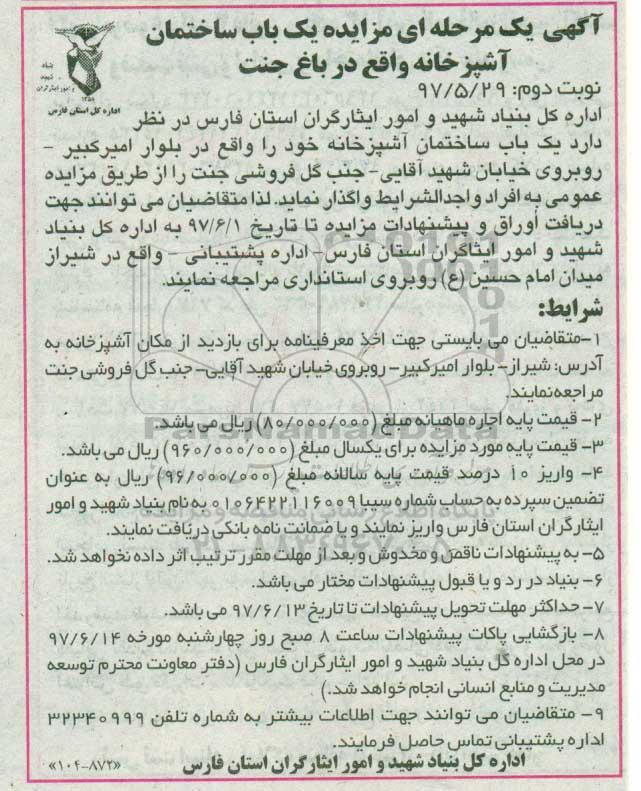 آگهی یک مرحله ای مزایده یک باب ساختمان
آشپزخانه واقع در باغ جنت
بنیاد
شهید
و امور ایثارگران
۱۳۵۸
اداره کل استان فارس
نوبت دوم: ۹۷/۵/۲۹
اداره کل بنیاد شهید و امور ایثارگران استان فارس در نظر
دارد یک باب ساختمان آشپزخانه خود را واقع در بلوار امیرکبیر –
روبروی خیابان شهید آقایی- جنب گل فروشی جنت را از طریق مزایده
عمومی به افراد واجدالشرایط واگذار نماید. لذا متقاضیان می توانند جهت
دریافت اوراق و پیشنهادات مزایده تا تاریخ ۹۷/۶/۱ به اداره کل بنیاد
شهید و امور ایثاگران استان فارس- اداره پشتیبانی - واقع در شیراز
میدان امام حسین (ع) روبروی استانداری مراجعه نمایند.
شرایط:
۱-متقاضیان می بایستی جهت اخذ معرفینامه برای بازدید از مکان آشپزخانه به
آدرس: شیراز- بلوار امیرکبیر- روبروی خیابان شهید آقایی- جنب گل فروشی جنت
مراجعه نمایند.
۲- قیمت پایه اجاره ماهیانه مبلغ (۸۰/۰۰۰/۰۰۰) ریال می باشد.
۳- قیمت پایه مورد مزایده برای یکسال مبلغ (۹۶۰/۰۰۰/۰۰۰) ریال می باشد.
۴- واریز ۱۰ درصد قیمت پایه سالانه مبلغ (۹۶/۰۰۰/۰۰۰) ریال به عنوان
تضمین سپرده به حساب شماره سیبا ۰۱۰۶۴۲۲۱۱۶۰۰۹ به نام بنیاد شهید و امور
ایثارگران استان فارس واریز نمایند و یا ضمانت نامه بانکی دریافت نمایند.
۵- به پیشنهادات ناقص و مخدوش و بعد از مهلت مقرر ترتیب اثر داده نخواهد شد.
۶- بنیاد در رد و یا قبول پیشنهادات مختار می باشد.
۷- حداکثر مهلت تحویل پیشنهادات تا تاریخ ۹۷/۶/۱۳ می باشد.
۸- بازگشایی پاکات پیشنهادات ساعت ۸ صبح روز چهارشنبه مورخه ۹۷/۶/۱۴
در محل اداره کل بنیاد شهید و امور ایثارگران فارس (دفتر معاونت محترم توسعه
مدیریت و منابع انسانی انجام خواهد شد.)
۹- متقاضیان می توانند جهت اطلاعات بیشتر به شماره تلفن ۳۲۳۴۰۹۹۹
اداره پشتیبانی تماس حاصل فرمایند.
اداره کل بنیاد شهید و امور ایثارگران استان فارس
«۱۰۴-۸۷۲»
ParsNamadData